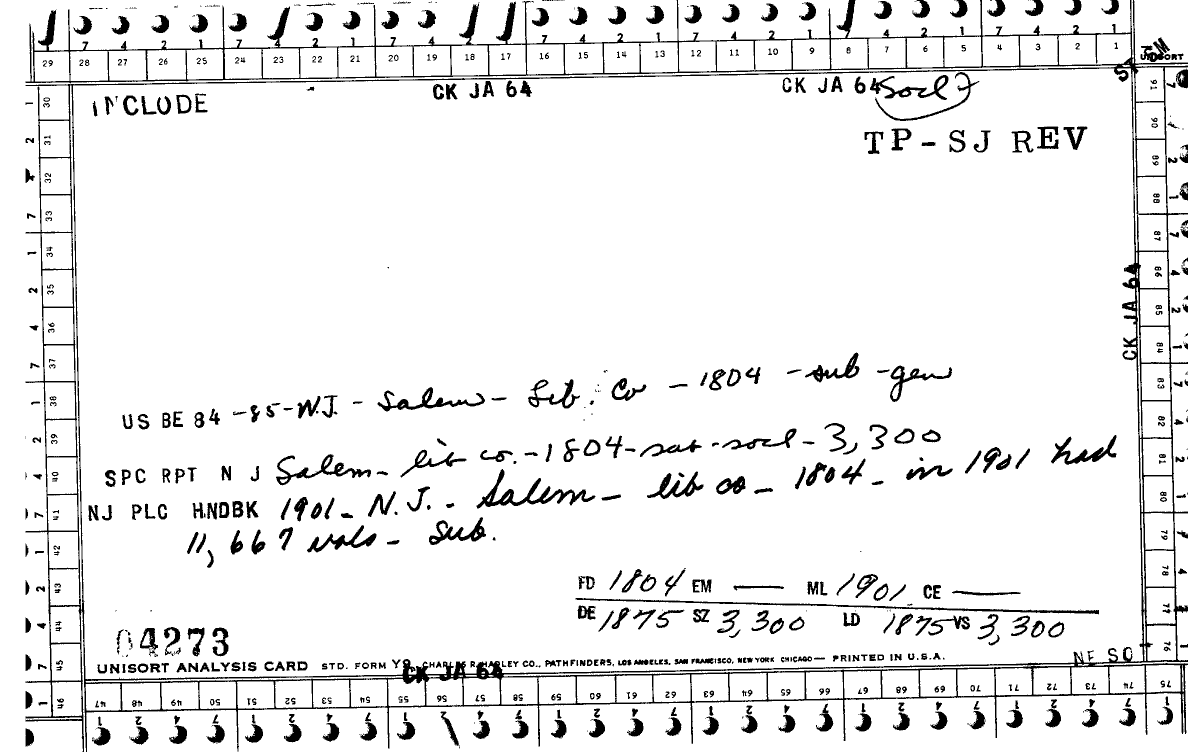 7 4 2 1 7 4 2 1 7 4 2 1 7 4 2 1 7 4 2 1 7 4 2 1
29 28 27 26 25 24 23 22 21 20 19 18 17 16 15 14 13 12 11 10 9 8 7 6 5 4 3 2 1
UNISORT
INCLUDE CK JA 64 CK JA 64 socl
TP-SJ REV
CK JA 64
US BE 84-85-N.J. - Salem - Lib. Co - 1804 - sub - gen
SPC RPT N J Salem - lib co. - 1804 - sub - socl - 3,300
NJ PLC HNDBK 1901 - N.J. - Salem - lib co - 1804 - in 1901 had
11,667 vols - Sub.
FD 1804 EM — ML 1901 CE —
DE 1875 SZ 3,300 LD 1875 VS 3,300
04273
UNISORT ANALYSIS CARD STD. FORM Y9 CHARLES R. HADLEY CO., PATHFINDERS, LOS ANGELES, SAN FRANCISCO, NEW YORK CHICAGO — PRINTED IN U.S.A.
CK JA 64
NE SO
30 31 32 33 34 35 36 37 38 39 40 41 42 43 44 45 46
47 48 49 50 51 52 53 54 55 56 57 58 59 60 61 62 63 64 65 66 67 68 69 70 71 72 73 74 75
91 90 89 88 87 86 85 84 83 82 81 80 79 78 77 76